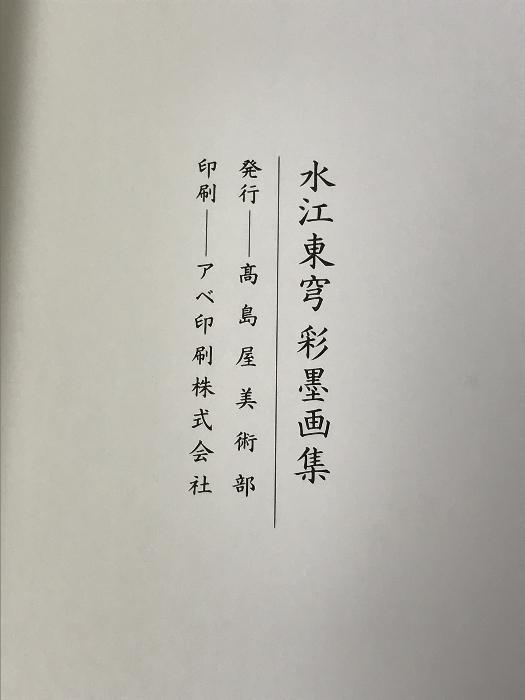 水江東穹 彩墨画集
発行——髙島屋美術部
印刷——アベ印刷株式会社